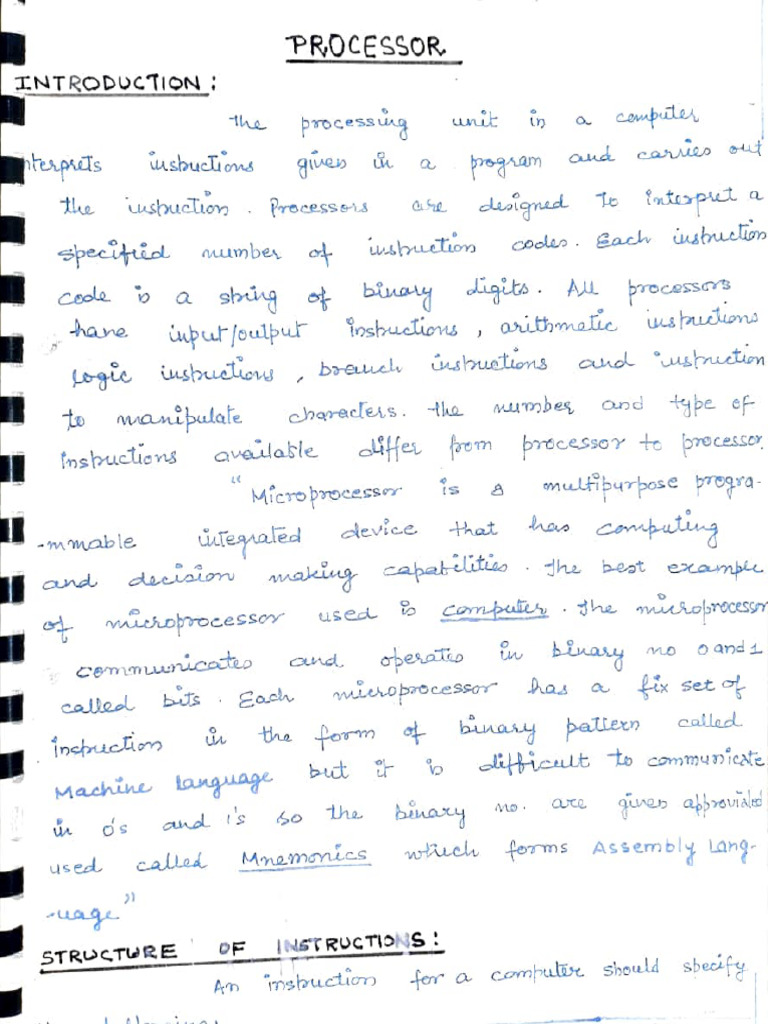 PROCESSOR
INTRODUCTION:
The processing unit in a computer
nterprets instructions given in a program and carries out
the instruction. Processors are designed to interpret a
specified number of instruction codes. Each instruction
code is a string of binary digits. All processors
have input/output instructions, arithmetic instructions
Logic instructions, branch instructions and instruction
to manipulate characters. The number and type of
instructions available differ from processor to processor.
"Microprocessor is a multipurpose progra-
-mmable integrated device that has computing
and decision making capabilities. The best example
of microprocessor used is computer. The microprocessor
communicates and operates in binary no 0 and 1
called bits. Each microprocessor has a fix set of
instruction in the form of binary pattern called
Machine language but it is difficult to communicate
in 0's and 1's so the binary no. are given
used called Mnemonics which forms Assembly Lang-
-uage"
STRUCTURE OF INSTRUCTIONS:
An instruction for a computer should specify